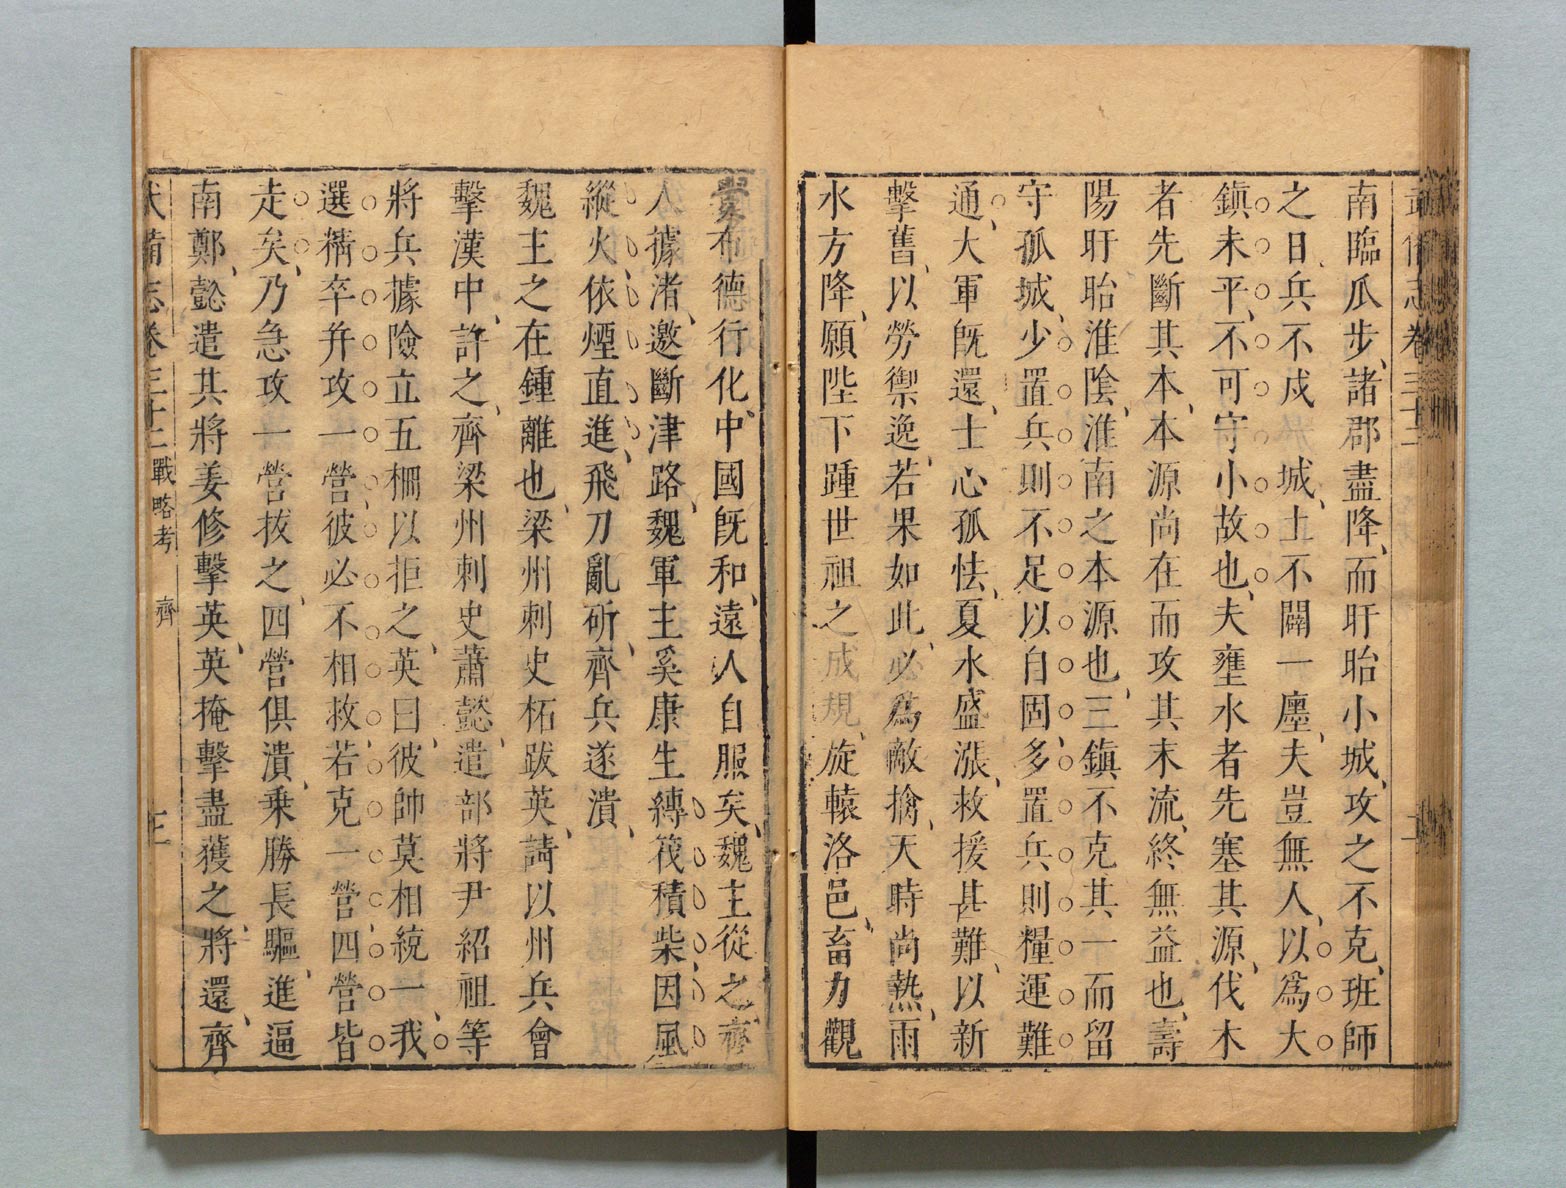 武備志卷三十二
南臨瓜步諸郡盡降而盱眙小城攻之不克班師
之日兵不戍一城土不闢一廛夫豈無人以爲大
鎮未平不可守小故也夫壅水者先塞其源伐木
者先斷其本本源尚在而攻其末流終無益也壽
陽盱眙淮陰淮南之本源也三鎮不克其一而留
守孤城少置兵則不足以自固多置兵則糧運難
通大軍旣還士心孤怯夏水盛漲救援甚難以新
擊舊以勞禦逸若果如此必爲敵擒天時尚熱雨
水方降願陛下踵世祖之成規旋轅洛邑畜力觀
釁布德行化中國旣和遠人自服矣魏主從之齊
人據渚邀斷津路魏軍主奚康生縛筏積柴因風
縱火依煙直進飛刀亂斫齊兵遂潰
魏主之在鍾離也梁州刺史柘跋英請以州兵會
擊漢中許之齊梁州刺史蕭懿遣部將尹紹祖等
將兵據險立五柵以拒之英曰彼帥莫相統一我
選精卒幷攻一營彼必不相救若克一營四營皆
走矣乃急攻一營拔之四營俱潰乘勝長驅進逼
南鄭懿遣其將姜修擊英英掩擊盡獲之將還齊
武備志卷三十二 戰略考 齊